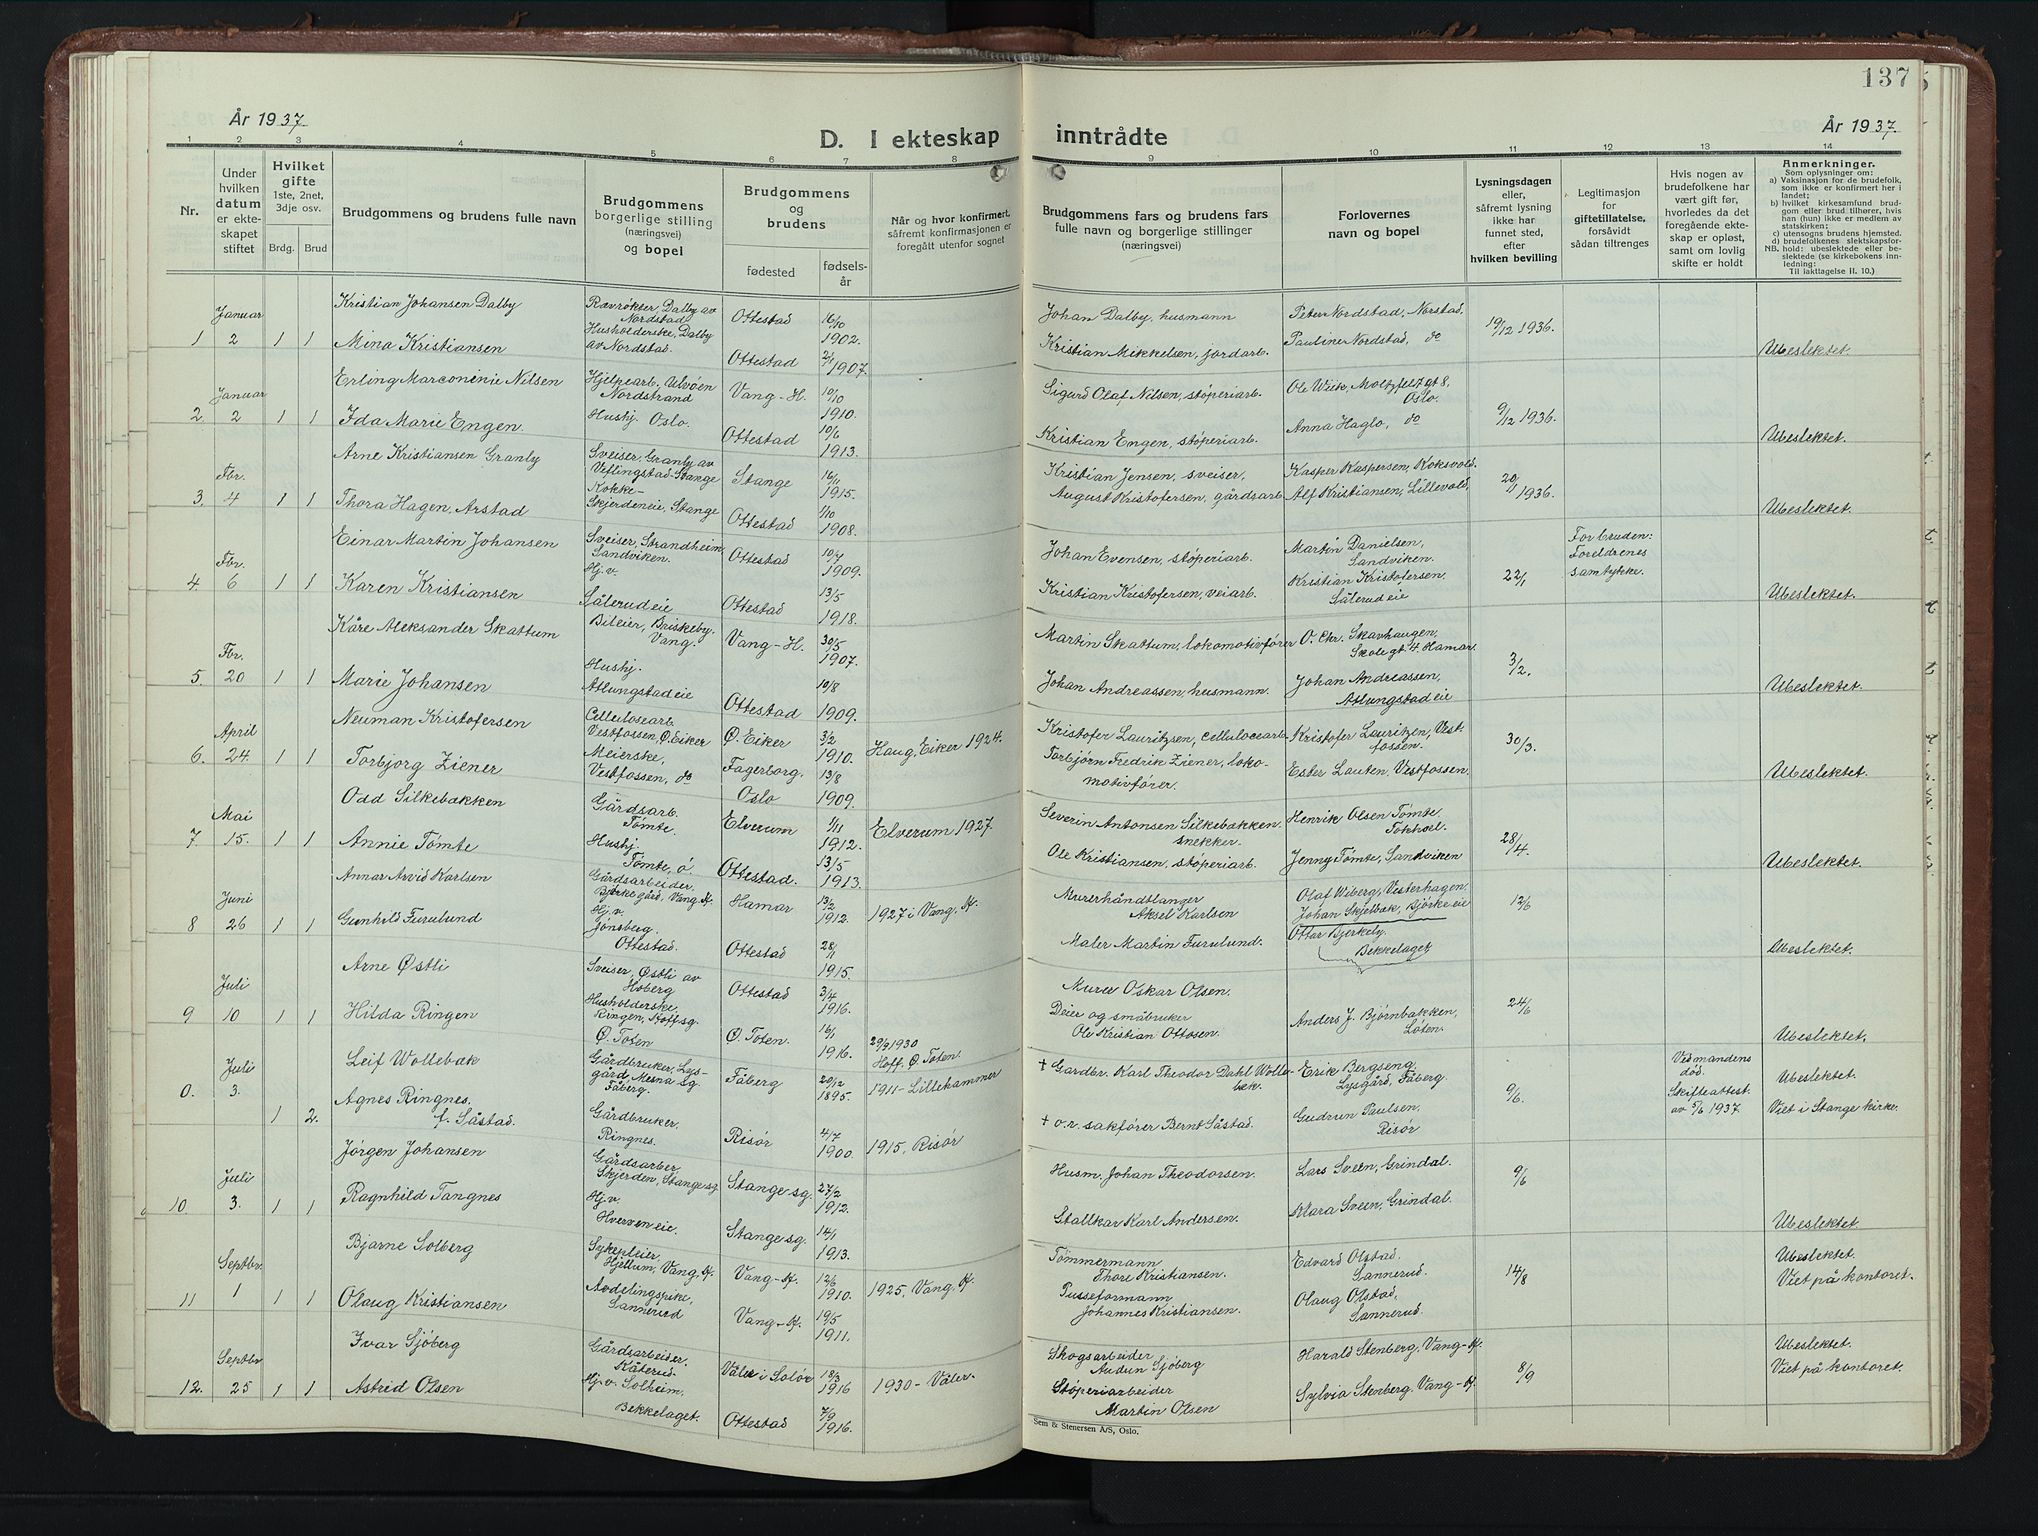 137
År 1937
År 1937.
D. I ekteskap inntrådte
1 2 3 4 5 6 7 8 9 10 11 12 13 14
Nr.
Under hvilken datum er ekteskapet stiftet
Hvilket gifte
1ste, 2net, 3dje osv.
Brdg. Brud
Brudgommens og brudens fulle navn
Brudgommens borgerlige stilling (næringsvei) og bopel
Brudgommens og brudens
fødested
fødselsår
Når og hvor konfirmert, såfremt konfirmasjonen er foregått utenfor sognet
Brudgommens fars og brudens fars fulle navn og borgerlige stillinger (næringsvei)
Forlovernes navn og bopel
Lysningsdagen eller, såfremt lysning ikke har funnet sted, efter hvilken bevilling
Legitimasjon for giftetillatelse, forsåvidt sådan tiltrenges
Hvis nogen av brudefolkene har vært gift før, hvorledes da det foregående ekteskap er opløst, samt om lovlig skifte er holdt
Anmerkninger.
Som oplysninger om:
a) Vaksinasjon for de brudefolk, som ikke er konfirmert her i landet;
b) hvilket kirkesamfund brudgom eller brud tilhører, hvis han (hun) ikke er medlem av statskirken;
c) utensogns brudens hjemsted.
d) brudefolkenes slektskapsforhold: ubeslektede eller beslektede (se kirkebokens innledning:
NB.
Til iakttagelse II. 10.)
1 Januar 2 1 1
Kristian Johansen Dalby
Røvrøkter, Dalby av Nordstad
Ottestad 16/10 1902.
Johan Dalby, husmann
Peter Nordstad, Norstad.
19/12 1936.
Mina Kristiansen
Husholderske, Dalby av Nordstad.
Ottestad 2/1 1907.
Kristian Mikkelsen, jordarb.
Pauline Nordstad, do
Ubeslektet.
2. Januar 2 1 1
Erling Marconinie Nilsen
Hjelpearb, Ulvøen Nordstrand
Vang-H. 10/10 1910.
Sigurd Olaf Nilsen, støperiarb.
Ole Wiik, Moltzfeldtgt 8, Oslo.
9/12 1936.
Ida Marie Engen.
Hushj. Oslo.
Ottestad 10/6 1913.
Kristian Engen, støperiarb.
Anna Haglo, do
Ubeslektet.
3. Fbr. 4 1 1
Arne Kristiansen Granly
Sveiser, Granly av Viflingstad-Stange
Stange 16/11 1915.
Kristian Jensen, sveiser,
Kasper Kaspersen, Koksvold.
20/1 1936.
Thora Hagen, Arstad
Kokke- Skjerdeneie, Stange
Ottestad 1/10 1908.
August Kristofersen, gårdsarb.
Alf Kristiansen, Lillevold.
Ubeslektet.
4. Fbr. 6 1 1
Einar Martin Johansen
Sveiser, Strandheim, Sandviken.
Ottestad 10/7 1909.
Johan Evensen, støperiarb.
Martin Danielsen, Sandviken.
22/1
For bruden: Foreldrenes samtykke.
Karen Kristiansen
Hj.v. Sålerud eie
Ottestad 13/5 1918.
Kristian Kristofersen, veiarb.
Kristian Kristofersen. Sålerud eie
Ubeslektet.
5. Fbr. 20 1 1
Kåre Aleksander Skattum
Bileier, Briskeby. Vang.
Vang-H. 30/5 1907.
Martin Skattum, lokomotivfører
O. Chr. Skavhaugen, Skolegt. 4. Hamar.
3/2.
Marie Johansen
Hushj. Atlungstad eie
Ottestad 10/8 1909.
Johan Andreassen, husmann.
Johan Andreassen, Atlungstad eie
Ubeslektet.
6. April 24. 1 1
Neuman Kristofersen
Cellulosearb. Vestfossen, Ø. Eiker
Ø. Eiker 3/2 1910.
Haug, Eiker 1924.
Kristofer Lauritzsen, cellulosearb.
Kristofer Lauritzen, Vestfossen.
30/3.
Torbjørg Ziener
Meierske, Vestfossen, do
Fagerborg. Oslo 13/8 1909.
Torbjørn Fredrik Ziener, lokomotivfører.
Ester Lauten, Vestfossen.
Ubeslektet.
7. Mai 15. 1 1
Odd Silkebækken
Gårdsarb. Tømte.
Elverum 1/11 1912.
Elverum 1927.
Severin Antonsen Silkebækken. snekker.
Henrik Olsen Tømte. Tokhol.
28/4.
Annie Tømte
Hushj. Tømte, ö
Ottestad. 13/5 1913.
Ole Kristiansen, støperiarb.
Jenny Tømte, Sandviken
Ubeslektet.
8 Juni 26 1 1
Annar Arvid Karlsen
Gårdsarbeider, Bjerke gård, Vang, H.
Hamar 13/2 1912.
1927 i Vang, H.
Murerhåndtlanger Aksel Karlsen
Olaf Wiberg, Vesterhagen. Johan Skjelbæk, Bjørke eie
12/6
Gunhild Furulund
Hj.v. Jønsberg. Ottestad.
Ottestad 28/11 1915.
Maler Martin Furulund.
Ottar Bjerkely. Bekkelaget
Ubeslektet.
9 Juli 10 1 1
Arne Østli
Sveiser, Østli av Hoberg
Ottestad 3/4 1916.
Murer Oskar Olsen.
24/6
Hilda Ringen
Husholderske, Ringen, Hoff sg. Ø. Toten
Ø. Toten. 16/1 1916.
29/9 1930 Hoff, Ø. Toten.
Deier og småbruker Ole Kristian Ottosen.
Anders J. Bjørnbakken, Løten.
Ubeslektet.
0. Juli 3. 1 2.
Leif Wollebæk
Gårdbruker, Lysgård, Mesna sg. Fåberg.
Fåberg 20/12 1895.
1911 - Lillehammer
+ Gardbr. Karl Theodor Dahl Wollebæk.
Erik Bergseng, Lysgård, Fåberg.
9/6.
Ved mandens død. Skifteattest. av 5/6 1937.
Ubeslektet.
Agnes Ringnes. f. Såstad.
Gårdbruker. Ringnes.
Risør 4/7 1900.
1915, Risör
+ o.r. sakfører Bernt Såstad.
Gudrun Paulsen, Risör
Viet i Stange kirke.
10. Juli 3. 1 1
Jørgen Johansen
Gårdsarber, Skjerden, Stange sg
Stange sg. 27/2 1912.
Husm. Johan Theodorsen.
Lars Sveen, Grindal.
9/6
Ragnhild Tangnes
Hj.v. Hverven eie.
Stange sg. 14/1 1913.
Stallkar Karl Andersen.
Klara Sveen, Grindal.
Ubeslektet.
11 Septbr. 1 1 1
Bjarne Solberg
Sykepleier, Hjellum, Vang, H.
Vang-H. 12/6 1910.
1925, Vang, H.
Tømmermann Thore Kristiansen.
Edvard Olstad. Sannerud.
14/8
Ubeslektet.
Viet på kontoret.
Olaug Kristiansen
Avdelingspike, Sannerud
Vang-H. 19/5 1911.
Pusseformann Johannes Kristiansen.
Olaug Olstad, Sannerud.
12. Septbr 25 1 1
Ivar Sjøberg
Gårdsarbeider. Kåterud.
Våler i Solør 18/3 1916
1930 - Våler.
Skogsarbeider Audun Sjøberg
Harald Stenberg, Vang-H.
8/9
Ubeslektet.
Viet på kontoret.
Astrid Olsen
Hj.v. Solheim, Bekkelaget.
Ottestad 7/9 1916.
Støperiarbeider Martin Olsen
Sylvia Stenberg, Vang-H.
Sem & Stenersen A/S, Oslo.